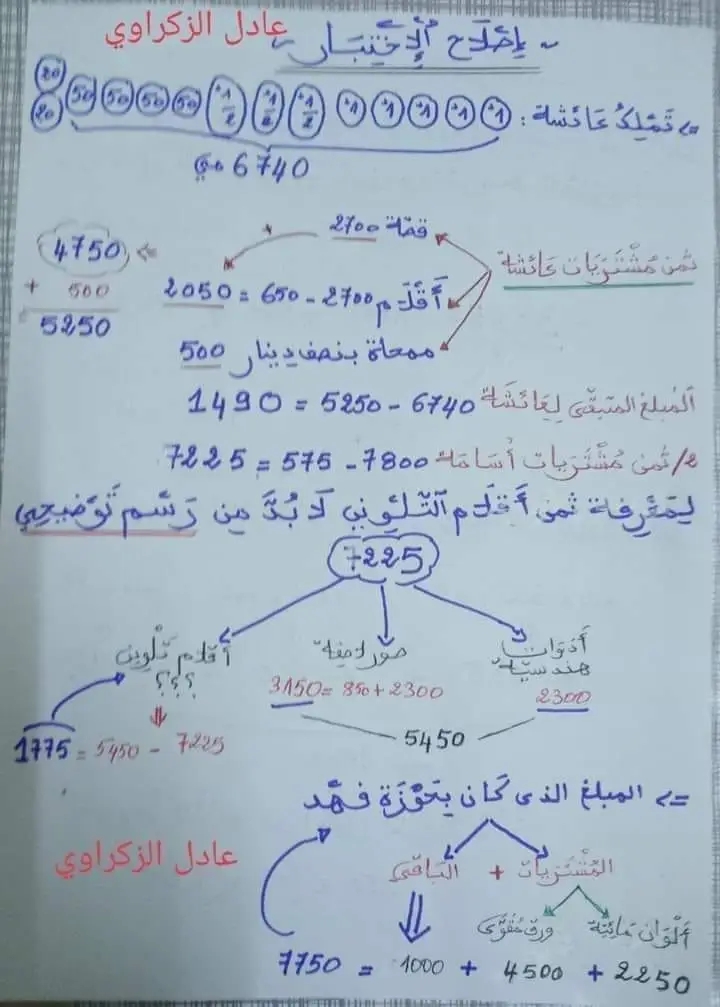 عادل الزكراوي
~ إصلاح الإختبار ~
=> تملك عائشة: 1 1 1 1 1 1/2 1/2 1/2 50 50 50 50 20 20
6740 مي
ثمن مشتريات عائشة
قصّة 2700
أقلام 2700 - 650 = 2050
ممحاة بنصف دينار 500
=> 4750
+ 500
5250
المبلغ المتبقّي لعائشة 6740 - 5250 = 1490
2/ ثمن مشتريات أسامة 7800 - 575 = 7225
لمعرفة ثمن أقلام التّلوين لا بدّ من رسم توضيحي
7225
أدوات هندسيّة
2300
صور لاصقة
2300 + 850 = 3150
أقلام تلوين
؟؟؟
5450
7225 - 5450 = 1775
=> المبلغ الذي كان بحوزة فهد
المشتريات + الباقي
عادل الزكراوي
ألوان مائيّة ورق مقوّى
2250 + 4500 + 1000 = 7750